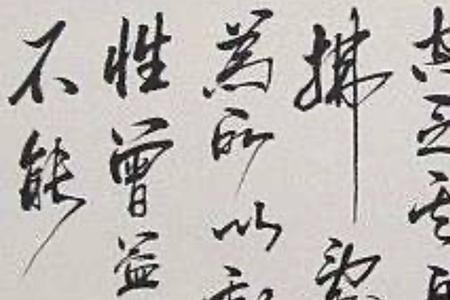 拂亂
為所以動
性曾益
不能